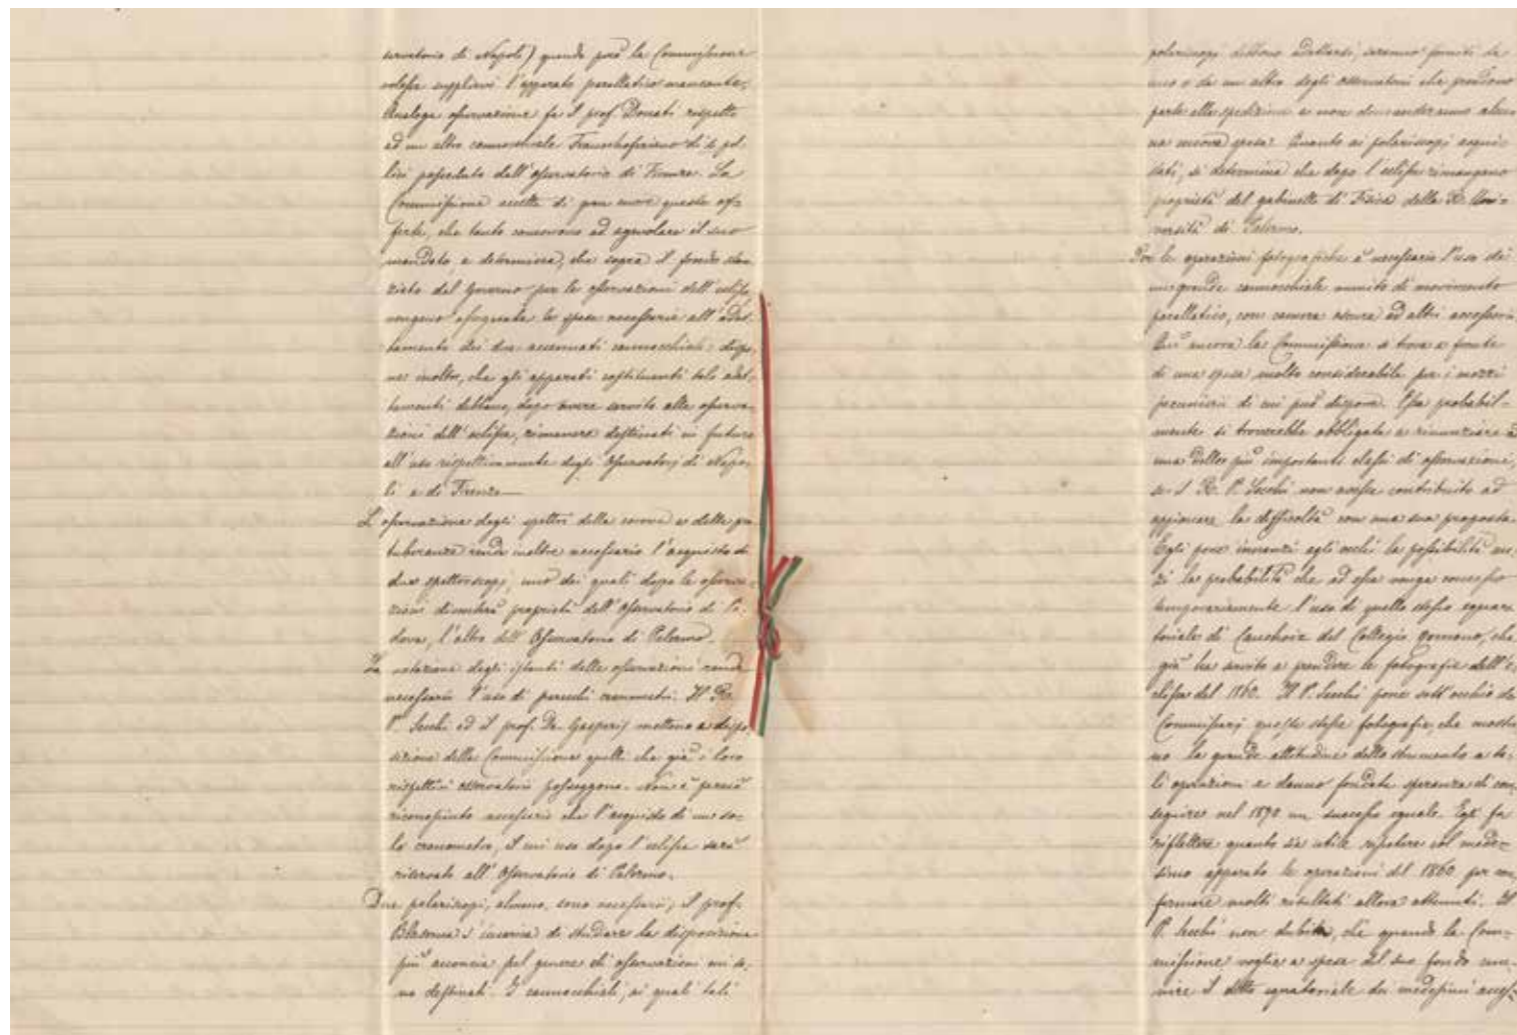 servatorio di Napoli) quando però la Commissione
volesse supplirvi l'apparato parallatico mancante.
Analoga osservazione fa il prof. Donati rispetto
ad un altro cannocchiale Fraunhoferiano di 4 pol-
lici posseduto dall'Osservatorio di Firenze. La
Commissione accetta di gran cuore queste of-
ferte, che tanto concorrono ad agevolare il suo
mandato, e determina, che sopra il fondo stan-
ziato dal Governo per le osservazioni dell'eclisse
vengano eseguite le spese necessarie all'adat-
tamento dei due accennati cannocchiali: dispo-
ne inoltre, che gli apparati costituenti tale adat-
tamenti debbano, dopo avere servito alle osserva-
zioni dell'eclisse, rimanere destinati in futuro
all'uso rispettivamente degli Osservatorj di Napo-
li e di Firenze.
L'osservazione degli spettri della corona e delle pro-
tuberanze rende inoltre necessario l'acquisto di
due spettroscopj, uno dei quali dopo le osserva-
zioni diverrà proprietà dell'Osservatorio di Pa-
dova, l'altro dell'Osservatorio di Palermo.
La notazione degli istanti delle osservazioni rende
necessario l'uso di parecchi cronometri. Il R.
P. Secchi ed il prof. De Gasperis mettono a dispo-
sizione della Commissione quelli che già i loro
rispettivi osservatorii posseggono. Non è perciò
riconosciuto necessario che l'acquisto di un so-
lo cronometro, il cui uso dopo l'eclisse sarà
riservato all'Osservatorio di Palermo.
Due polariscopi, almeno, sono necessarj; il prof.
Blaserna s'incarica di studiare la disposizione
più acconcia pel genere di osservazioni cui so-
no destinati. I cannocchiali, ai quali tali
polariscopi debbono adattarsi, saranno forniti da
uno o da un altro degli osservatori che prendono
parte alla spedizione e non domanderanno alcu-
na nuova spesa. Quanto ai polariscopi acqui-
stati, si determina che dopo l'eclisse rimangano
proprietà del gabinetto di Fisica della R. Uni-
versità di Palermo.
Per le operazioni fotografiche è necessario l'uso di
un grande cannocchiale munito di movimento
parallatico, con camera oscura ed altri accessorii.
Qui ancora la Commissione si trova a fronte
di una spesa molto considerabile per i mezzi
pecuniarii di cui può disporre. Essa probabil-
mente si troverebbe obbligata a rinunziare a
una delle più importanti classi di osservazioni,
se il R. P. Secchi non avesse contribuito ad
appianare la difficoltà con una sua proposta.
Egli pone innanzi agli occhi la possibilità an-
zi la probabilità che ad essa venga concesso
temporariamente l'uso di quello stesso equato-
toriale di Cauchoix del Collegio romano, che
già ha servito a prendere le fotografie dell'e-
clisse del 1860. Il P. Secchi pone sott'occhio dei
Commissarj queste stesse fotografie, che mostra-
no la grande attitudine dello strumento a ta-
li operazioni e danno fondata speranza di con-
seguire nel 1870 un successo eguale. Egli fa
riflettere quanto sia utile ripetere col mede-
simo apparato le operazioni del 1860 per con-
fermare molti risultati allora ottenuti. Il
P. Secchi non dubita, che quando la Com-
missione voglia a spese del suo fondo mu-
nire il detto equatoriale dei medesimi access-